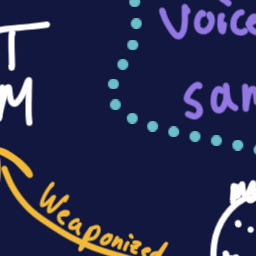 T
M
Voice
sam
Weaponized